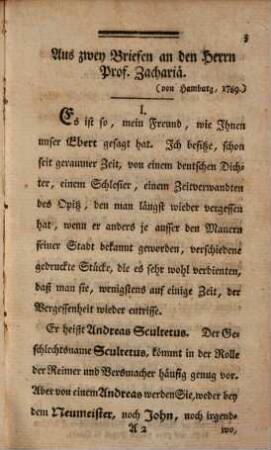 3
Aus zwey Briefen an den Herrn
Prof. Zachariä.
(von Hamburg, 1769.)
I.
Es ist so, mein Freund, wie Ihnen
unser Ebert gesagt hat. Ich besitze, schon
seit geraumer Zeit, von einem deutschen Dich-
ter, einem Schlesier, einem Zeitverwandten
des Opitz, den man längst wieder vergessen
hat, wenn er anders je ausser den Mauern
seiner Stadt bekannt geworden, verschiedene
gedruckte Stücke, die es sehr wohl verdienten,
daß man sie, wenigstens auf einige Zeit, der
Vergessenheit wieder entrisse.
Er heißt Andreas Scultetus. Der Ge-
schlechtsname Scultetus, kömmt in der Rolle
der Reimer und Versmacher häufig genug vor.
Aber von einem Andreas werden Sie, weder bey
dem Neumeister, noch John, noch irgend-
A 2 wo,